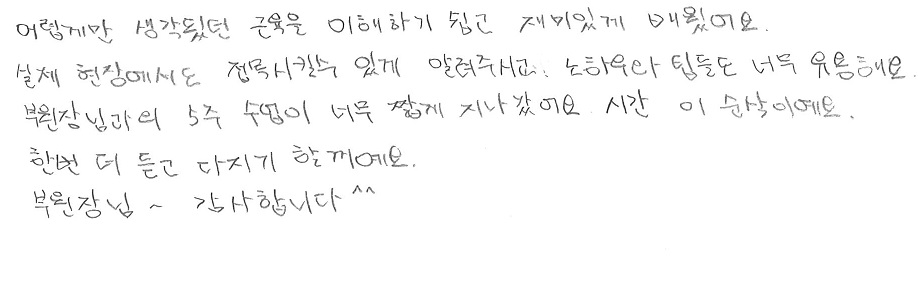 어렵게만 생각됬던 근육을 이해하기 쉽고 재미있게 배웠어요.
실제 현장에서도 접목시킬수 있게 알려주시고. 노하우와 팁들도 너무 유용해요.
부원장님과의 5주 수업이 너무 짧게 지나갔어요 시간 이 순삭이에요.
한번 더 듣고 다지기 할께예요.
부원장님 ~ 감사합니다 ^^